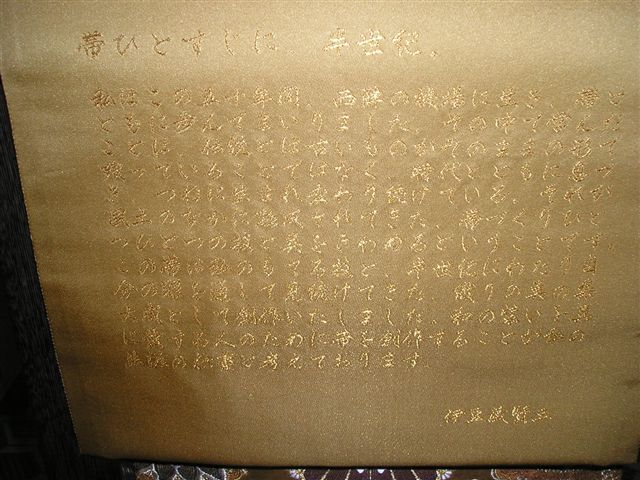 帯ひとすじに 半世紀。
私はこの五十年間、西陣の機場に生き、帯と
ともに歩んでまいりました。その中で学んだ
ことは、伝統とは古いものがそのままの形で
残っていることではなく、時代とともに息づ
き、つねに生まれ変わり続けている、それが
風土のなかに されてきた、帯づくりひと
つひとつの技と美をきわめるということです。
この帯は私のもてる技と、半世紀にわたり自
分の 通して見続けてきた、織りの美の集
大成として創作いたしました。和の装いを
に愛する人のために帯を創作することが私の
の仕事と考えております。
伊豆蔵賢三